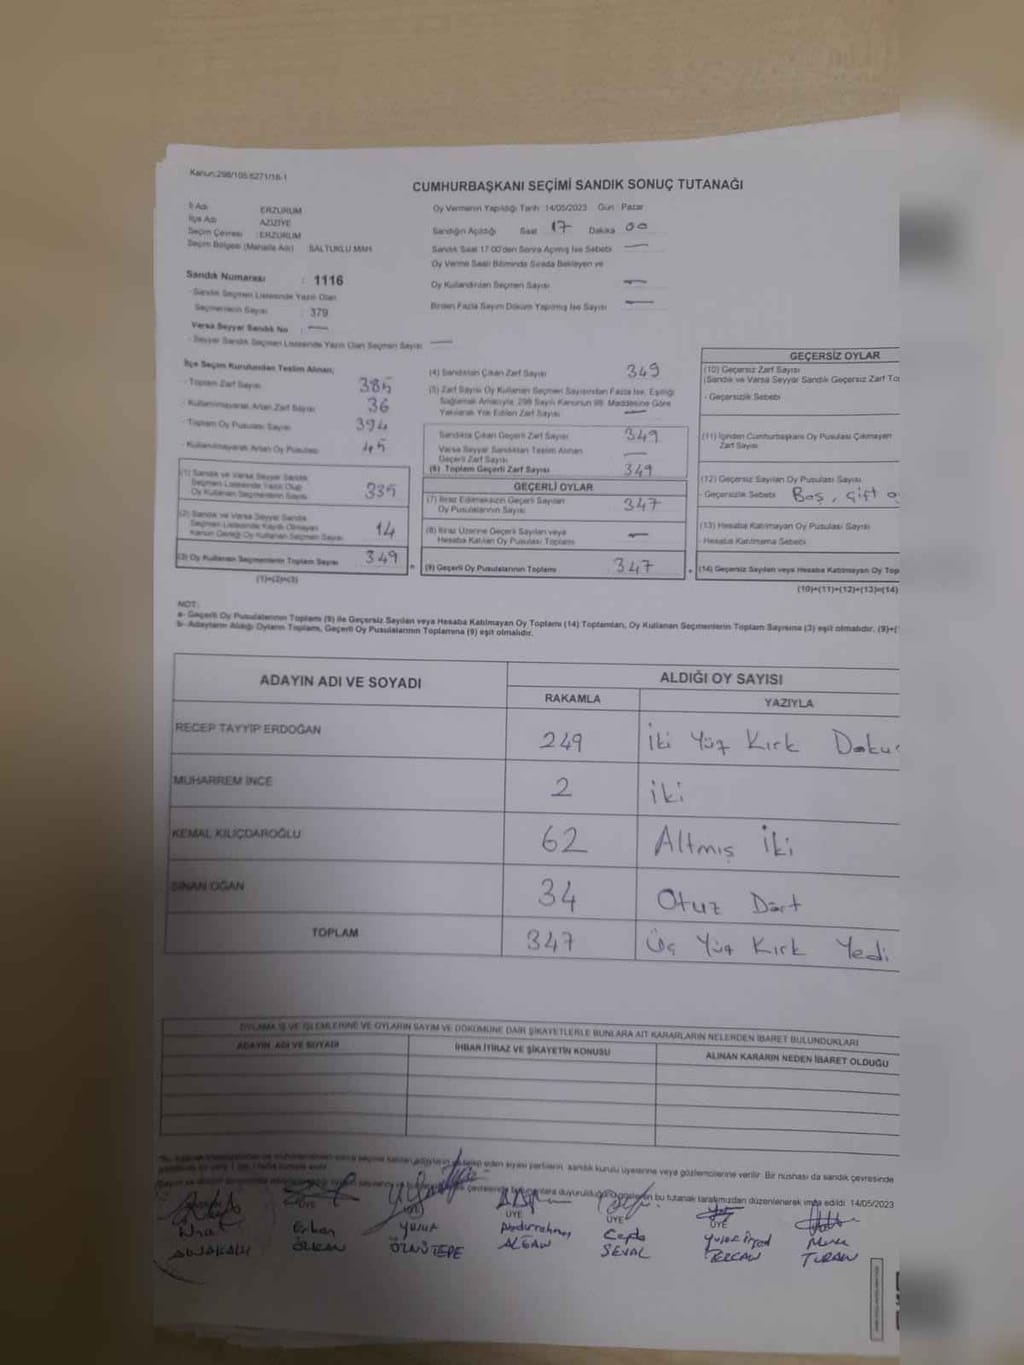 Kanun:298/105 6271/18-1
CUMHURBAŞKANI SEÇİMİ SANDIK SONUÇ TUTANAĞI
İl Adı ERZURUM
İlçe Adı AZİZİYE
Seçim Çevresi : ERZURUM
Seçim Bölgesi (Mahalle Adı) SALTUKLU MAH.
Sandık Numarası : 1116
- Sandık Seçmen Listesinde Yazılı Olan
Seçmenlerin Sayısı : 379
Varsa Seyyar Sandık No : —
- Seyyar Sandık Seçmen Listesinde Yazılı Olan Seçmen Sayısı —
Oy Vermenin Yapıldığı Tarih :14/05/2023 Gün Pazar
Sandığın Açıldığı Saat 17 Dakika 00
Sandık Saat 17.00'den Sonra Açılmış İse Sebebi —
Oy Verme Saati Bitiminde Sırada Bekleyen ve
Oy Kullandırılan Seçmen Sayısı —
Birden Fazla Sayım Döküm Yapılmış İse Sayısı —
İlçe Seçim Kurulundan Teslim Alınan;
- Toplam Zarf Sayısı 385
- Kullanılmayarak Artan Zarf Sayısı 36
- Toplam Oy Pusulası Sayısı 394
- Kullanılmayarak Artan Oy Pusulası 45
(1) Sandık ve Varsa Seyyar Sandık
Seçmen Listesinde Yazılı Olup
Oy Kullanan Seçmenlerin Sayısı 335
(2) Sandık ve Varsa Seyyar Sandık
Seçmen Listesinde Kayıtlı Olmayan
Kanun Gereği Oy Kullanan Seçmen Sayısı 14
(3) Oy Kullanan Seçmenlerin Toplam Sayısı 349
(1)+(2)=(3)
(4) Sandıktan Çıkan Zarf Sayısı 349
(5) Zarf Sayısı Oy Kullanan Seçmen Sayısından Fazla İse, Eşitliği
Sağlamak Amacıyla, 298 Sayılı Kanunun 98. Maddesine Göre
Yakılarak Yok Edilen Zarf Sayısı —
Sandıkta Çıkan Geçerli Zarf Sayısı 349
Varsa Seyyar Sandıktan Teslim Alınan
Geçerli Zarf Sayısı —
(6) Toplam Geçerli Zarf Sayısı 349
GEÇERLİ OYLAR
(7) İtiraz Edilmeksizin Geçerli Sayılan
Oy Pusulalarının Sayısı 347
(8) İtiraz Üzerine Geçerli Sayılan veya
Hesaba Katılan Oy Pusulası Toplamı —
(9) Geçerli Oy Pusulalarının Toplamı 347
GEÇERSİZ OYLAR
(10) Geçersiz Zarf Sayısı
(Sandık ve Varsa Seyyar Sandık Geçersiz Zarf To
- Geçersizlik Sebebi
(11) İçinden Cumhurbaşkanı Oy Pusulası Çıkmayan
Zarf Sayısı
(12) Geçersiz Sayılan Oy Pusulası Sayısı
- Geçersizlik Sebebi Boş, çift o
(13) Hesaba Katılmayan Oy Pusulası Sayısı
- Hesaba Katılmama Sebebi
(14) Geçersiz Sayılan veya Hesaba Katılmayan Oy Top
(10)+(11)+(12)+(13)=(14)
NOT:
a- Geçerli Oy Pusulalarının Toplamı (9) ile Geçersiz Sayılan veya Hesaba Katılmayan Oy Toplamı (14) Toplamları, Oy Kullanan Seçmenlerin Toplam Sayısına (3) eşit olmalıdır. (9)+(
b- Adayların Aldığı Oyların Toplamı, Geçerli Oy Pusulalarının Toplamına (9) eşit olmalıdır.
ADAYIN ADI VE SOYADI ALDIĞI OY SAYISI
RAKAMLA YAZIYLA
RECEP TAYYİP ERDOĞAN 249 İki Yüz Kırk Doku
MUHARREM İNCE 2 İki
KEMAL KILIÇDAROĞLU 62 Altmış İki
SİNAN OĞAN 34 Otuz Dört
TOPLAM 347 Üç Yüz Kırk Yedi
OYLAMA İŞ VE İŞLEMLERİNE VE OYLARIN SAYIM VE DÖKÜMÜNE DAİR ŞİKAYETLERLE BUNLARA AİT KARARLARIN NELERDEN İBARET BULUNDUKLARI
ADAYIN ADI VE SOYADI İHBAR İTİRAZ VE ŞİKAYETİN KONUSU ALINAN KARARIN NEDEN İBARET OLDUĞU
eden siyasi partilerin, sandık kurulu üyelerine veya gözlemcilerine verilir. Bir nüshası da sandık çevresinde
bu tutanak tarafımızdan düzenlenerek imza edildi. 14/05/2023
ÜYE ÜYE ÜYE ÜYE ÜYE
Erkan Yusuf Abdurrahman Yusuf
ALGAN SEVAL TURAN